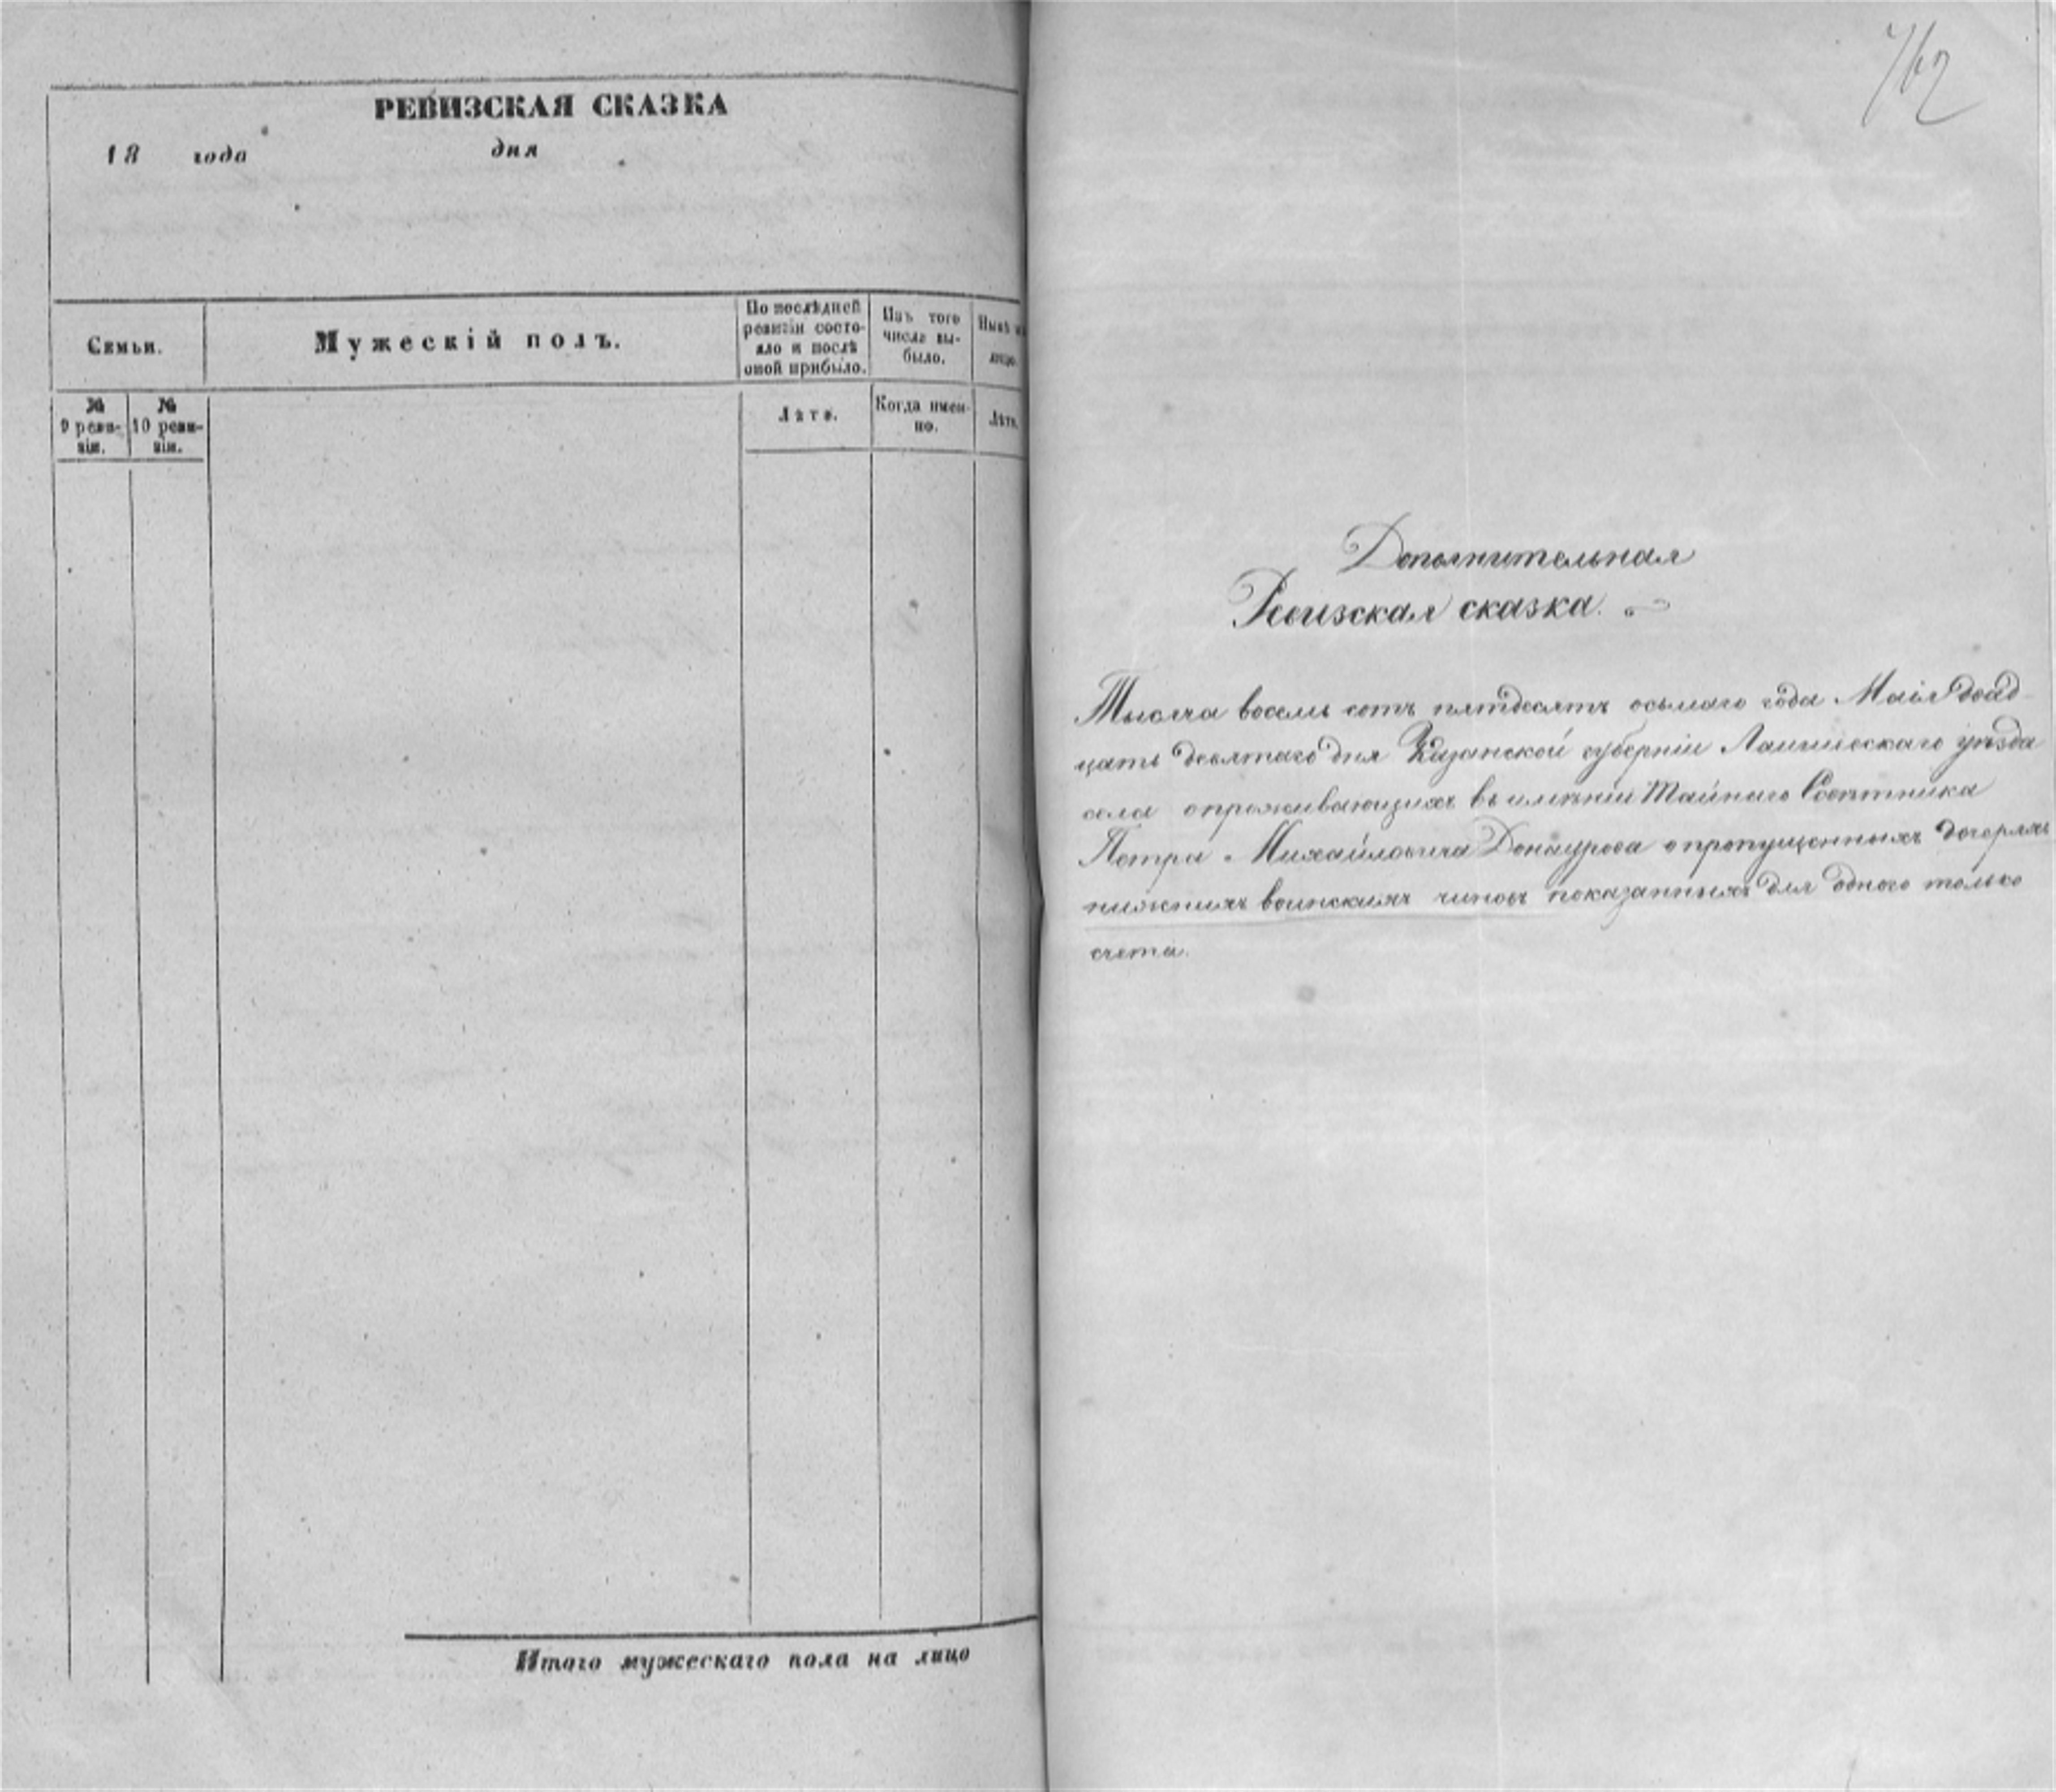 РЕВИЗСКАЯ СКАЗКА
18 года дня
Семьи.
Мужескій полъ.
По послѣдней ревизіи состо-
яло и послѣ
оной прибыло.
Изъ того
числа вы-
было.
Нынѣ
лицо.
№
9 реви-
зіи.
№
10 реви-
зіи.
Лѣта.
Когда имен-
но.
Лѣта.
Итого мужескаго пола на лицо
762
Дополнительная
Ревизская сказка.
Тысяча восемь сотъ пятдесятъ осьмаго года Маія двад-
цать девятаго дня Казанской губерніи Лаишевскаго уѣзда
села о проживающихъ въ имѣніи Тайнаго Совѣтника
Петра Михайловича Донаурова о пропущенныхъ дочеряхъ
нижнихъ воинскихъ чиновъ показанныхъ для одного только
счета.